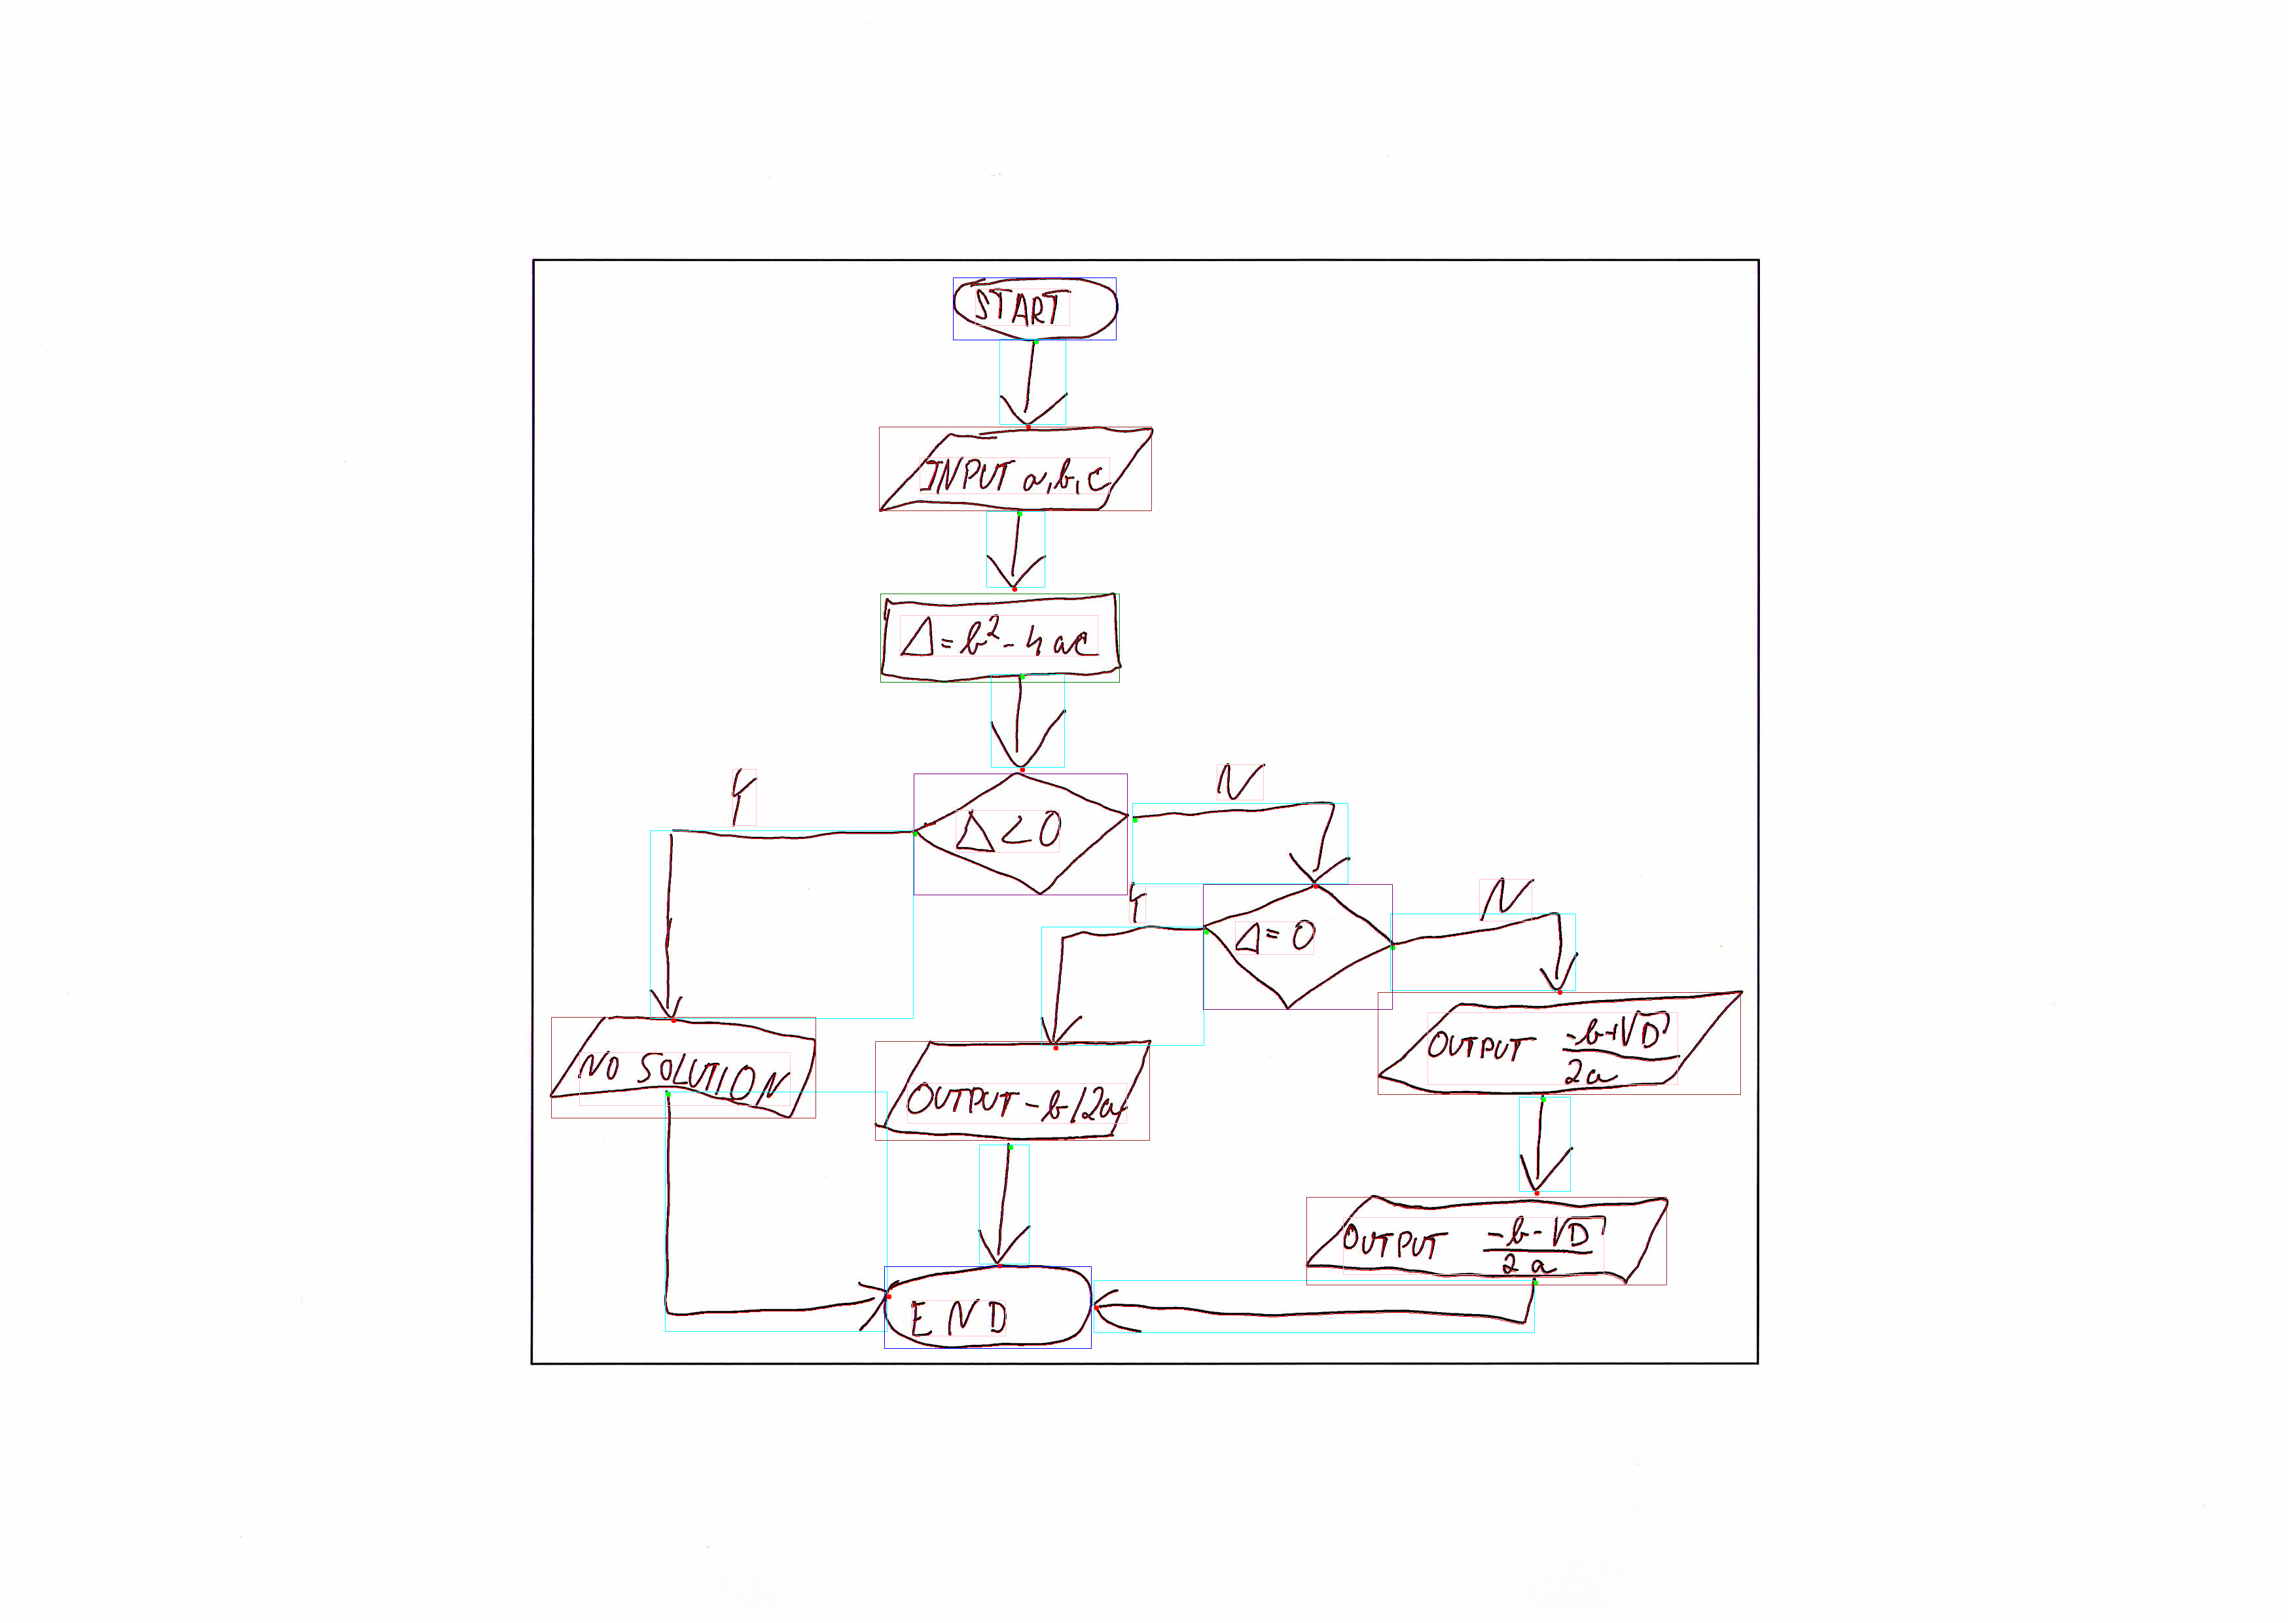 START
INPUT a, b, c
Δ = b² - 4ac
Y
N
Δ < 0
Y
N
Δ = 0
NO SOLUTION
OUTPUT - b / 2a
OUTPUT (-b+√D)/2a
OUTPUT (-b-√D)/2a
END